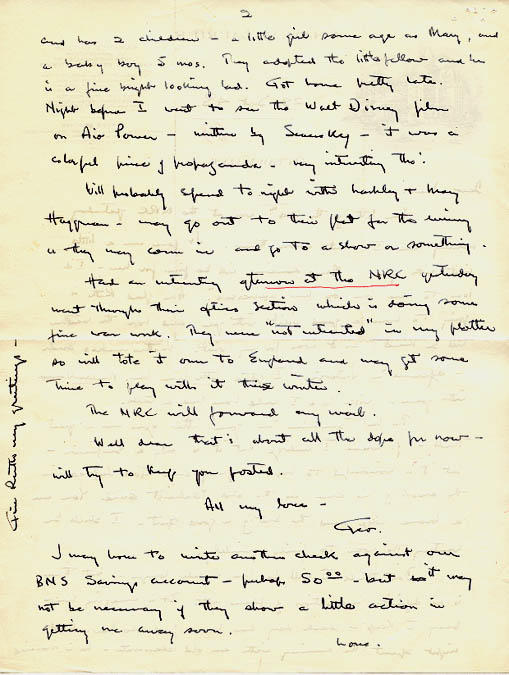 2
and has 2 children - a little girl same age as Mary, and
a baby boy 5 mos. They adopted the little fellow and he
is a fine bright looking lad. Got home pretty late.
Night before I went to see the Walt Disney film
on Air Power - written by Seversky - it was a
colorful piece of propaganda - very interesting tho'.
Will probably spend to night with & Mary
- may go out to their flat for the evening
or they may come in and go to a show or something.
Had an interesting afternoon at the NRC yesterday
went through their optics section which is doing some
fine war work. They were "not interested" in my plotter
so will tote it over to England and may get some
time to play with it this winter.
The NRC will forward any mail.
Well dear that's about all the dope for now -
will try to keep you posted.
All my love -
Geo.
I may have to write another check against our
BNS Savings account - perhaps 50 00 - but it may
not be necessary if they show a little action in
getting me away soon.
Love.
Give Ruth my greetings -